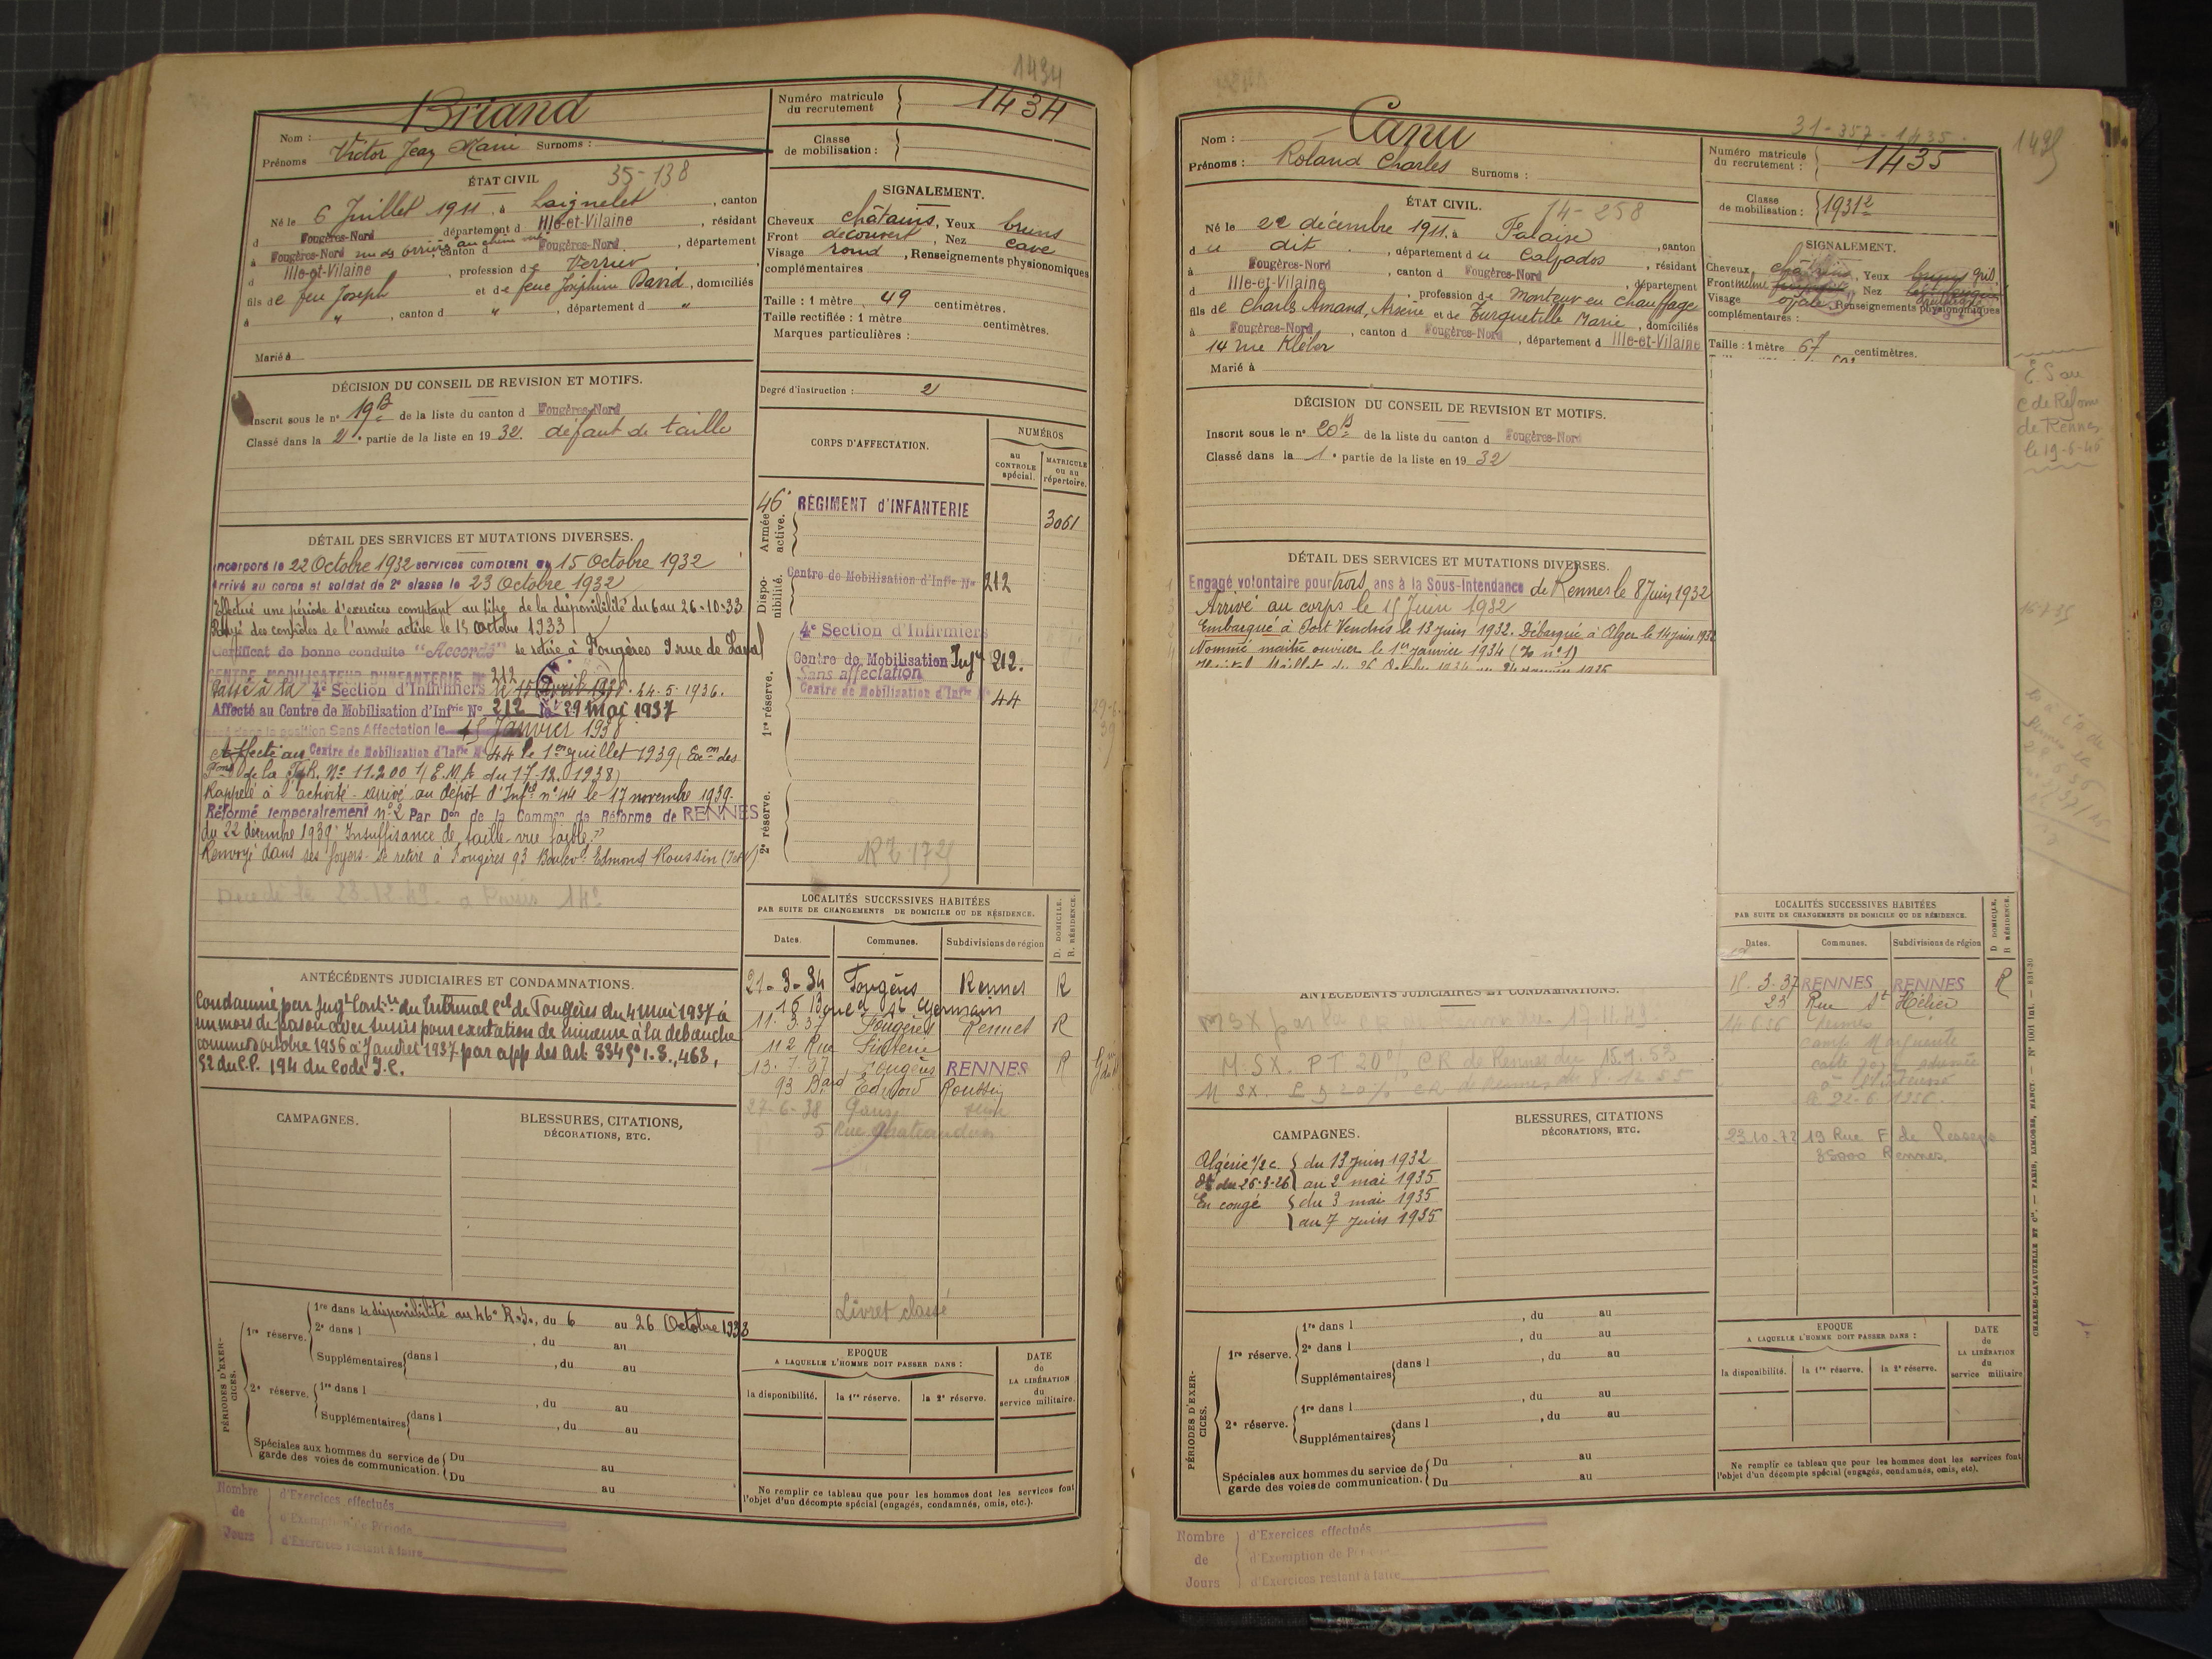 1434
Briand
Nom :
Prénoms Victor Jean Marie Surnoms :
Numéro matricule du recrutement 1434
Classe de mobilisation :
ÉTAT CIVIL 35-138
Né le 6 Juillet 1911, à Laignelet, canton
d Fougères-Nord département d Ille-et-Vilaine, résidant
à Fougères-Nord canton d Fougères-Nord, département
d Ille-et-Vilaine, profession de Verrier
fils de feu Joseph et de feue Joséphine David, domiciliés
à " , canton d " , département d "
Marié à
SIGNALEMENT.
Cheveux châtains, Yeux bruns
Front découvert, Nez cave
Visage rond, Renseignements physionomiques
complémentaires
Taille : 1 mètre 49 centimètres.
Taille rectifiée : 1 mètre centimètres.
Marques particulières :
Degré d'instruction : 2
DÉCISION DU CONSEIL DE REVISION ET MOTIFS.
Inscrit sous le n° 19 B de la liste du canton d Fougères-Nord
Classé dans la 2e partie de la liste en 1932. défaut de taille
CORPS D'AFFECTATION.
NUMÉROS
au CONTROLE spécial.
MATRICULE ou au répertoire.
Armée active.
46e RÉGIMENT d'INFANTERIE 3061
Disponibilité.
Centre de Mobilisation d'Infie N° 212
1re réserve.
4e Section d'Infirmiers
Centre de Mobilisation Infie 212.
Sans affectation
Centre de Mobilisation d'Infie N° 44
2e réserve.
DÉTAIL DES SERVICES ET MUTATIONS DIVERSES.
Incorporé le 22 Octobre 1932 services comptant du 15 Octobre 1932
Arrivé au corps et soldat de 2e classe le 23 Octobre 1932
Effectué une période d'exercices comptant au titre de la disponibilité du 6 au 26-10-33
Rayé des contrôles de l'armée active le 15 octobre 1933
Certificat de bonne conduite "Accordé" se retire à Fougères rue de Laval
CENTRE MOBILISATEUR D'INFANTERIE N° 212
Passé à la 4e Section d'Infirmiers le 24-5-1936.
Affecté au Centre de Mobilisation d'Infrie N° 212 le 29 mai 1937
position Sans Affectation le 15 Janvier 1938
Affecté au Centre de Mobilisation d'Infie N° 44 le 1er juillet 1939 (Exon des
Pons de la N° 11.200 1/E.M.A du 17-12-1938)
Rappelé à l'activité - arrivé au dépôt d'Infie n° 44 le 17 novembre 1939.
Réformé temporairement n° 2 Par Don de la Common de Réforme de RENNES
du 22 décembre 1939 Insuffisance de taille - vue faible
Renvoyé dans ses foyers - se retire à Fougères 93 Boulevd Edmond Roussin
Décédé le 23.12.49 à Paris 14e
LOCALITÉS SUCCESSIVES HABITÉES
PAR SUITE DE CHANGEMENTS DE DOMICILE OU DE RÉSIDENCE.
Dates. Communes. Subdivisions de région D. DOMICILE. R. RÉSIDENCE.
21-3-34 Fougères Rennes R
16 St Germain
11.3.37 Fougères Rennes R
112 Rue
13.7.37 Fougères RENNES R
93 Bard Edmond Roussin
27-6-38 Paris Seine
5 Rue Chateaudun
Livret classé
ANTÉCÉDENTS JUDICIAIRES ET CONDAMNATIONS.
Condamné par Jugt du Tribunal Cel de Fougères du 4 Mai 1937 à
un mois de prison avec sursis pour excitation de mineure à la débauche
commise octobre 1936 à Janvier 1937 par app des art. 334 § 1-3, 463,
52 du C.P. 194 du Code I.C.
CAMPAGNES.
BLESSURES, CITATIONS, DÉCORATIONS, ETC.
PÉRIODES D'EXERCICES.
1re réserve. 1re dans la disponibilité au 46e R.I., du 6 au 26 Octobre 1933
2e dans l , du au
Supplémentaires dans l , du au
2e réserve. 1re dans l , du au
Supplémentaires dans l , du au
Spéciales aux hommes du service de garde des voies de communication. Du au
Du au
EPOQUE
A LAQUELLE L'HOMME DOIT PASSER DANS :
la disponibilité. la 1re réserve. la 2e réserve.
DATE de LA LIBÉRATION du service militaire.
Ne remplir ce tableau que pour les hommes dont les services font l'objet d'un décompte spécial (engagés, condamnés, omis, etc.).
Nombre de Jours
d'Exercices effectués
d'Exemption de Période
d'Exercices restant à faire
31-357-1435
1435
Canu
Nom :
Prénoms : Roland Charles Surnoms :
Numéro matricule du recrutement : 1435
Classe de mobilisation : 1931 2
ÉTAT CIVIL. 14-258
Né le 22 décembre 1911 à Falaise, canton
d u dit, département du Calvados, résidant
à Fougères-Nord, canton d Fougères-Nord, département
d Ille-et-Vilaine, profession de Monteur en chauffage
fils de Charles Amand, Arsène et de Turquetille Marie, domiciliés
à Fougères-Nord, canton d Fougères-Nord, département d Ille-et-Vilaine
14 rue Kléber
Marié à
SIGNALEMENT.
Cheveux châtains, Yeux bruns gris
Front incliné Nez
Visage ovale Renseignements physionomiques
complémentaires :
Taille : 1 mètre 67 centimètres.
C de Réforme
de Rennes
DÉCISION DU CONSEIL DE REVISION ET MOTIFS.
Inscrit sous le n° 20 B de la liste du canton d Fougères-Nord
Classé dans la 1e partie de la liste en 1932
DÉTAIL DES SERVICES ET MUTATIONS DIVERSES.
Engagé volontaire pour trois ans à la Sous-Intendance de Rennes le 8 Juin 1932
Arrivé au corps le 15 Juin 1932
Embarqué à Port Vendres le 13 Juin 1932. Débarqué à Alger le 14 juin 1932
Nommé maître ouvrier le 1er janvier 1934
ANTÉCÉDENTS JUDICIAIRES ET CONDAMNATIONS.
M.SX. PT 20% CR de Rennes du 15.9.53
CAMPAGNES.
Algérie du 13 Juin 1932
au 2 mai 1935
En congé du 3 mai 1935
au 7 Juin 1935
BLESSURES, CITATIONS DÉCORATIONS, ETC.
LOCALITÉS SUCCESSIVES HABITÉES
PAR SUITE DE CHANGEMENTS DE DOMICILE OU DE RÉSIDENCE.
Dates. Communes. Subdivisions de région D DOMICILE. R RÉSIDENCE.
3-37 RENNES RENNES R
23 Rue St Hélier
14 6.56 Rennes
Camp Marguerite
23.10.72 19 Rue F de Lesseps
35000 Rennes.
PÉRIODES D'EXERCICES.
1re réserve. 1re dans l , du au
2e dans l , du au
Supplémentaires dans l , du au
2e réserve. 1re dans l , du au
Supplémentaires dans l , du au
Spéciales aux hommes du service de garde des voies de communication. Du au
Du au
EPOQUE
A LAQUELLE L'HOMME DOIT PASSER DANS :
la disponibilité. la 1re réserve. la 2e réserve.
DATE de LA LIBÉRATION du service militaire
Ne remplir ce tableau que pour les hommes dont les services font l'objet d'un décompte spécial (engagés, condamnés, omis, etc).
CHARLES-LAVAUZELLE ET Cie. — PARIS, LIMOGES, NANCY.
Nombre de Jours
d'Exercices effectués
d'Exemption de
d'Exercices restant à faire